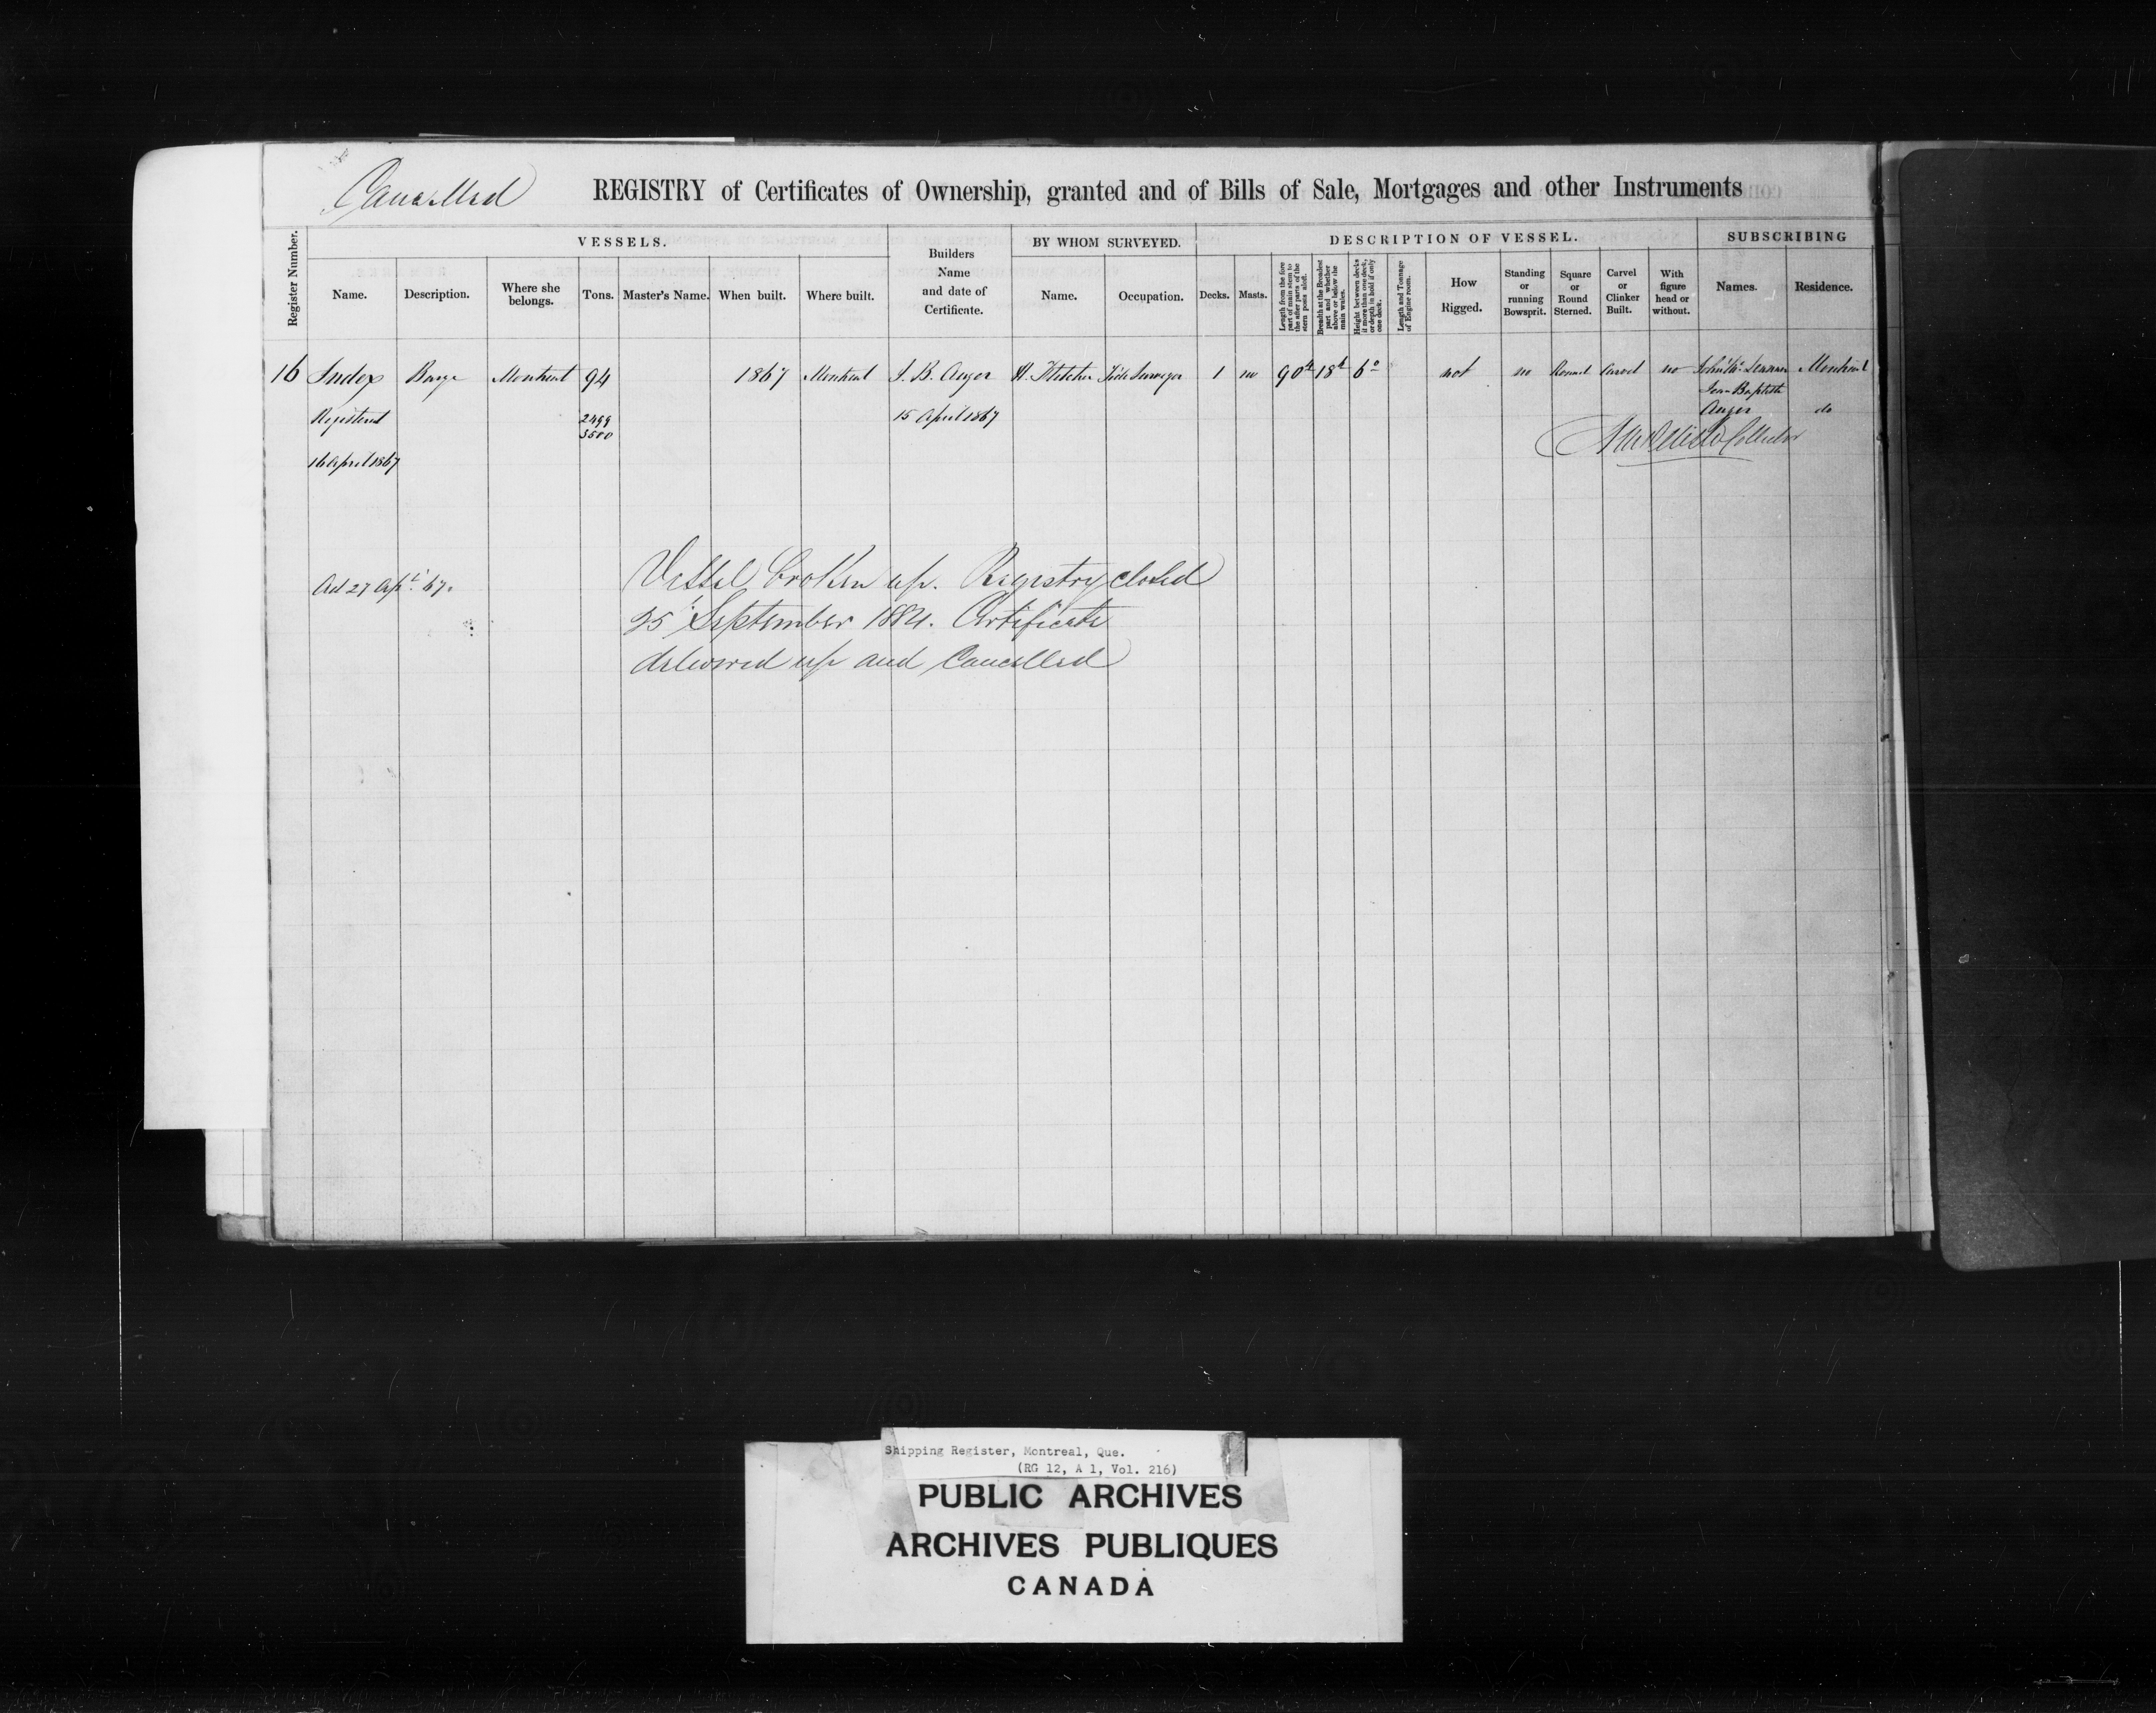 Cancelled
REGISTRY of Certificates of Ownership, granted and of Bills of Sale, Mortgages and other Instruments
Register Number.
VESSELS.
Name.
Description.
Where she
belongs.
Tons.
Master's Name.
When built.
Where built.
Builders
Name
and date of
Certificate.
BY WHOM SURVEYED.
Name.
Occupation.
DESCRIPTION OF VESSEL.
Decks.
Masts.
Length from the fore
part of main stem to
the after parts of the
stern posts aloft.
Breadth at the Broadest
part and whether
above or below the
main wales.
Height between decks
if more than one deck,
or depth in hold if only
one deck.
Length and Tonnage
of Engine room.
How
Rigged.
Standing
or
running
Bowsprit.
Square
or
Round
Sterned.
Carvel
or
Clinker
Built.
With
figure
head or
without.
SUBSCRIBING
Names.
Residence.
16 Index Barge Montreal 94 1867 Montreal J. B. Auger H. Fletcher Tide Surveyor 1 no 90 18 6 not no Round Carvel no Montreal
Jean Baptiste
Registered 2499 15 April 1867 Auger do
3500
Collector
16 April 1867
Ad 27 Apl. 67.
Vessel broken up. Registry closed
25 September 1884. Certificate
delivered up and Cancelled
Shipping Register, Montreal, Que.
(RG 12, A 1, Vol. 216)
PUBLIC ARCHIVES
ARCHIVES PUBLIQUES
CANADA